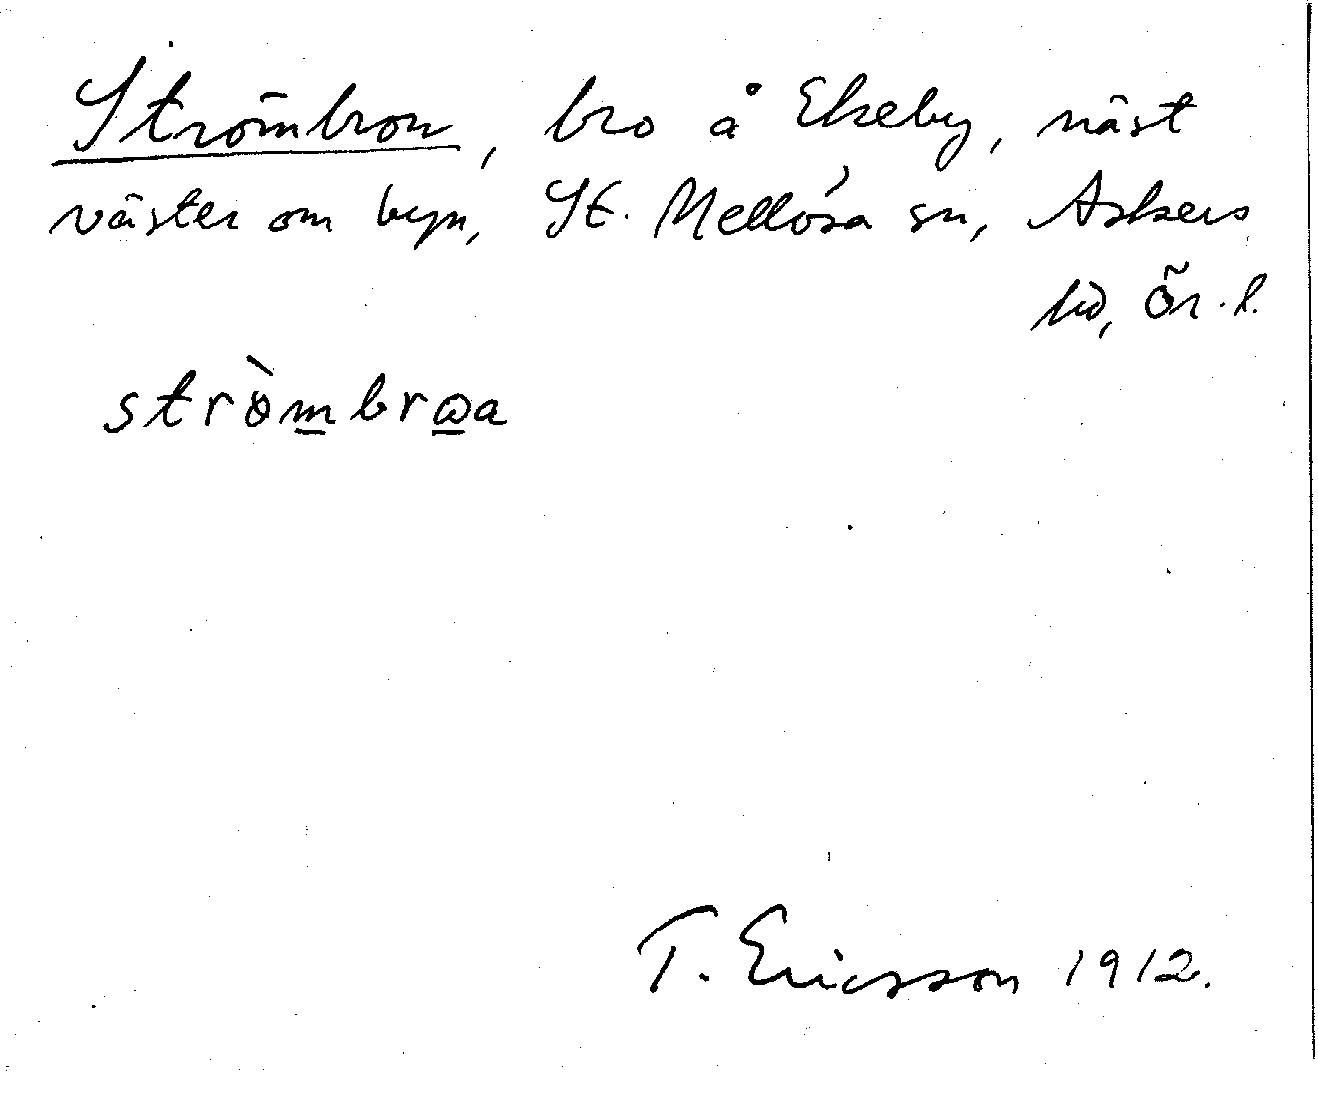 Strömbron, bro å Ekeby, näst
väster om byn, St. Mellösa sn, Askers
hd, Ör. l.
strò̈mbrωa
T. Ericsson 1912.